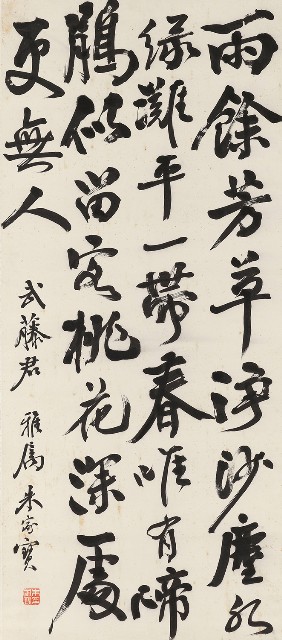 雨餘芳草淨沙塵水
綠灘平一帶春唯有啼
鵑似留客桃花深處
更無人
武藤君 雅屬 朱家寶